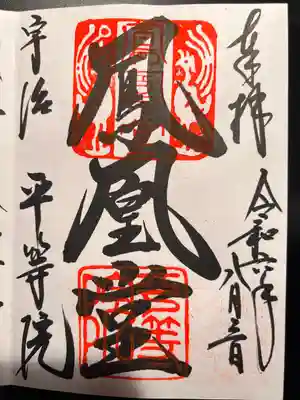 奉拝
令和六年八月三日
鳳凰堂
宇治 平等院